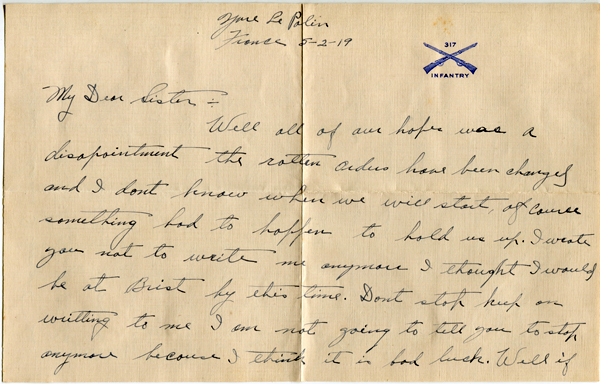 Yvre Le Polin
France 5-2-19
317
INFANTRY
My Dear Sister :-
Well all of our hopes was a
disapointment the rotten orders have been changed
and I dont know when we will start, of course
something had to happen to hold us up. I wrote
you not to write me anymore I thought I would
be at Brest by this time. Dont stop keep on
writting to me I am not going to tell you to stop
anymore because I think it is bad luck. Well if